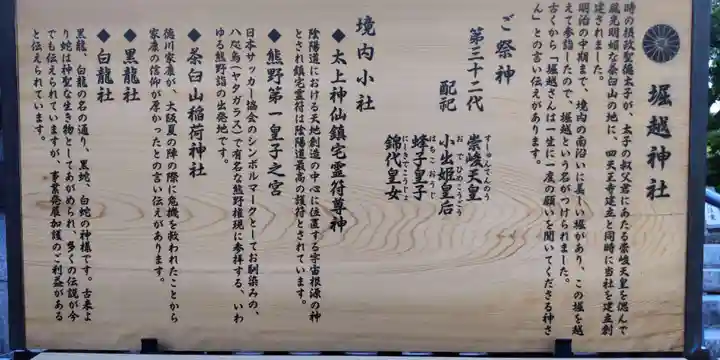 堀越神社
時の摂政聖徳太子が、太子の叔父君にあたる崇峻天皇を偲んで
風光明媚な茶臼山の地に、四天王寺建立と同時に当社を建立創
建されました。
明治の中期まで、境内の南沿いに美しい堀があり、この堀を越
えて参詣したので、堀越という名がつけられました。
古くから「堀越さんは一生に一度の願いを聞いてくださる神さ
ん」との言い伝えがあります。
ご祭神
第三十二代 崇峻天皇
すしゅんてんのう
配祀 小出姫皇后
おでひめこうごう
蜂子皇子
はちこおうじ
錦代皇女
にしきてこうじょ
境内小社
◆太上神仙鎮宅霊符尊神
陰陽道における天地創造の中心に位置する宇宙根源の神
とされ鎮宅霊符は陰陽道最高の護符とされています。
◆熊野第一皇子之宮
日本サッカー協会のシンボルマークとしてお馴染みの、
八咫烏(ヤタガラス)で有名な熊野権現に参拝する、いわ
ゆる熊野詣の出発地です。
◆茶臼山稲荷神社
徳川家康が、大阪夏の陣の際に危機を救われたことから
家康の信仰が厚かったとの言い伝えがあります。
◆黒龍社
◆白龍社
黒龍、白龍の名の通り、黒蛇、白蛇の神様です。古来よ
り蛇は神聖な生き物としてあがめられ、多くの伝説が今
でも伝えられていますが、事業発展加護のご利益がある
と伝えられています。